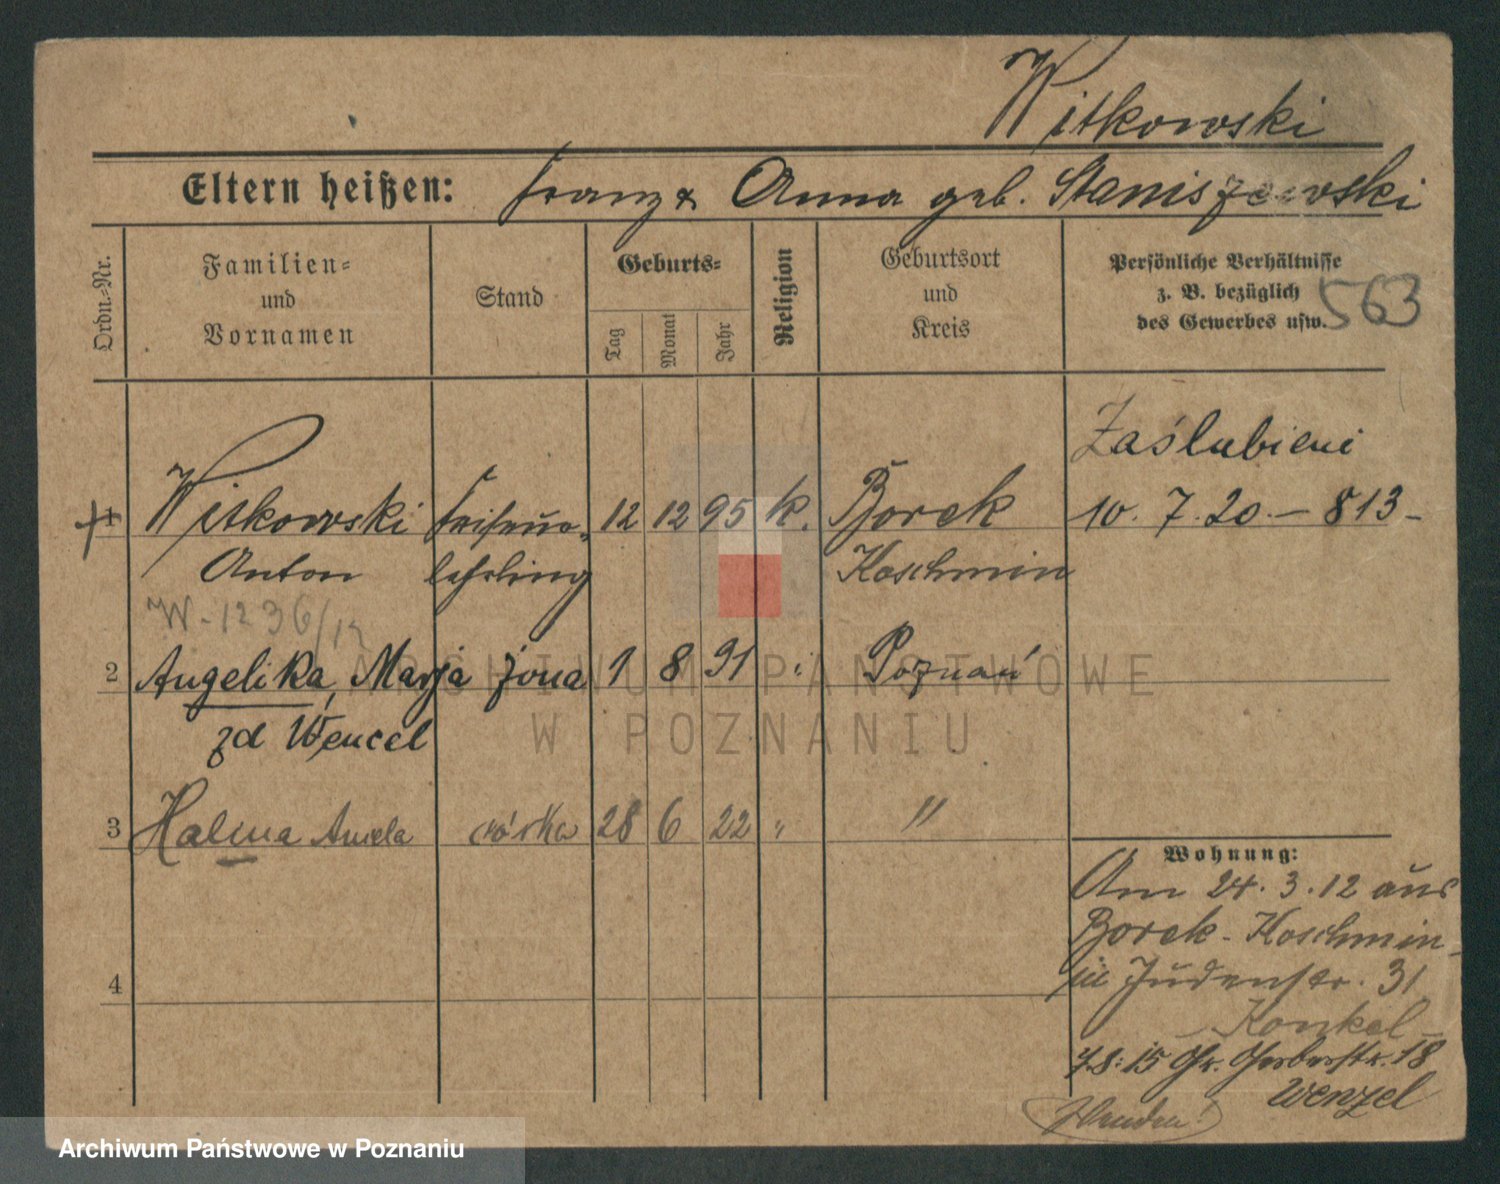 Witkowski
Eltern heißen: Franz & Anna geb. Staniszewski
Ordn.-Nr.
Familien- und Vornamen
Stand
Geburts-
Tag
Monat
Jahr
Religion
Geburtsort und Kreis
Persönliche Verhältnisse
z. B. bezüglich
des Gewerbes usw.
563
Zaślubieni
10. 7. 20. – 813 –
1 Witkowski Friseur- 12 12 95 k. Borek
Anton lehrling Koschmin
W-1236/12
2 Angelika, Marja żona 1 8 91 " Poznań
zd Wencel
3 Halina Aniela córka 28 6 22 " "
4
Wohnung:
Am 24. 3. 12 aus
Borek - Koschmin
in Judenstr. 31
Konkel
7.8.15 Gr. Gerberstr. 18
Wenzel
ARCHIWUM PAŃSTWOWE
W POZNANIU
Archiwum Państwowe w Poznaniu